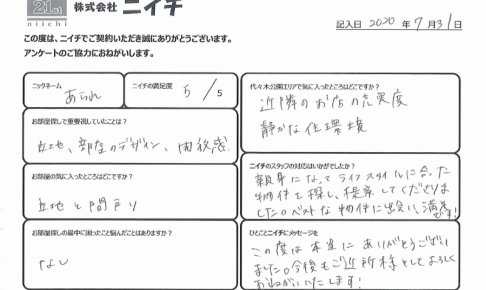 21st
niichi
株式会社 ニイチ
記入日 2020 年 7 月 31 日
この度は、ニイチでご契約いただき誠にありがとうございます。
アンケートのご協力におねがいします。
ニックネーム
あられ
ニイチの満足度
5 / 5
お部屋探しで重要視していたことは？
立地、部屋のデザイン、開放感
お部屋の気に入ったところはどこですか？
立地と間取り
お部屋探しの最中に困ったこと悩んだことはありますか？
なし
代々木公園エリアで気に入ったところはどこですか？
近隣のお店の充実度
静かな住環境
ニイチのスタッフの対応はいかがでしたか？
親身になってライフスタイルに合った
物件を探し、提案してくださいま
した。ベストな物件に出会い、満足
です！
ひとことニイチにメッセージを
この度は本当にありがとうござい
ました。今後もご近所様としてよろしく
お願いいたします！